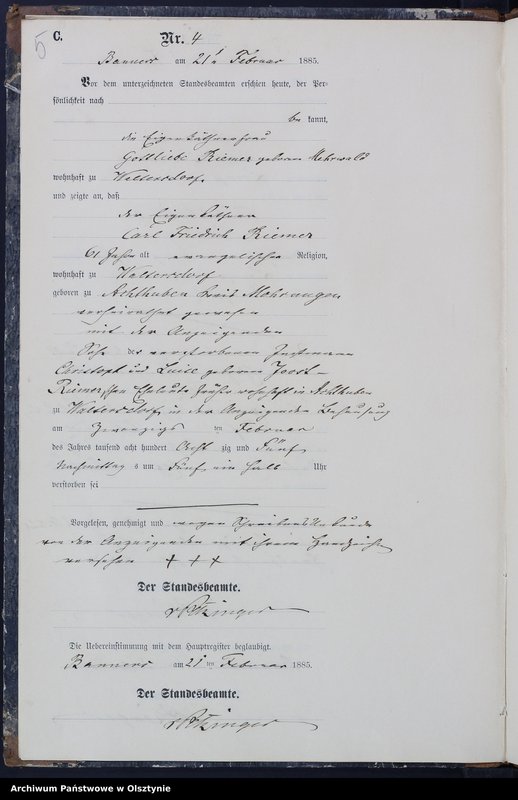 5
C.
Nr. 4
Banners am 21t Februar 1885.
Vor dem unterzeichneten Standesbeamten erschien heute, der Per-
sönlichkeit nach
be kannt,
die Eigenkäthnerfrau
Gottliebe Riemer geborne Mehrwald
wohnhaft zu Waltersdorf
und zeigte an, daß
der Eigenkäthner
Carl Friedrich Riemer
61 Jahre alt evangelischer Religion,
wohnhaft zu Waltersdorf
geboren zu Achthuben Kreis Mohrungen
verheirathet gewesen
mit der Anzeigenden
Sohn der verstorbenen Instmann
Christoph und Luise geborene Joost-
Riemerschen Eheleute früher wohnhaft in Achthuben
zu Waltersdorf in der Anzeigenden Behausung
am Zwanzigs ten Februar
des Jahrs tausend acht hundert Acht zig und Fünf
Nachmittag s um Fünf ein halb Uhr
verstorben sei
Vorgelesen, genehmigt und wegen Schreibens Unkunde
von der Anzeigenden mit ihrem Handzeichen
versehen + + +
Der Standesbeamte.
Die Uebereinstimmung mit dem Hauptregister beglaubigt.
Banners am 21 ten Februar 1885.
Der Standesbeamte.
Archiwum Państwowe w Olsztynie